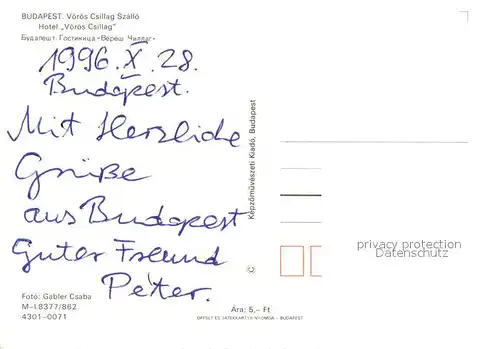 BUDAPEST. Vörös Csillag Szálló
Hotel „Vörös Csillag"
Будапешт. Гостиница «Вереш Чиллаг»
1996. X. 28.
Budapest.
Mit Herzliche
Grüße
aus Budapest
Guter Freund
Péter.
Képzőművészeti Kiadó, Budapest
privacy protection
Datenschutz
Fotó: Gabler Csaba
M-I.8377/862
4301-0071
Ára: 5,- Ft
OFFSET ÉS JÁTÉKKÁRTYA NYOMDA - BUDAPEST